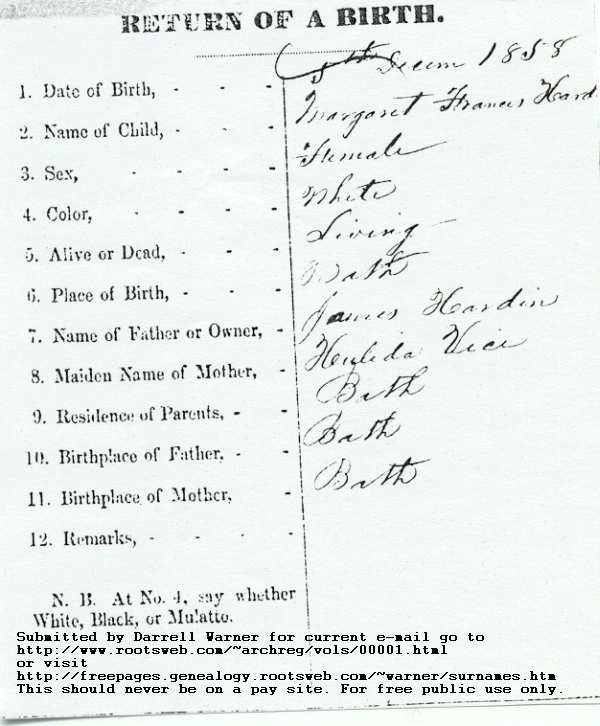 RETURN OF A BIRTH.
1. Date of Birth, - - - 5th Decem 1858
2. Name of Child, - - - Margaret Francis Hard
3. Sex, - - - - Female
4. Color, - - - - White
5. Alive or Dead, - - - Living
6. Place of Birth, - - - Bath
7. Name of Father or Owner, - James Hardin
8. Maiden Name of Mother, - Vice
9. Residence of Parents, - - Bath
10. Birthplace of Father, - - Bath
11. Birthplace of Mother, - Bath
12. Remarks, - - - -
N. B. At No. 4, say whether
White, Black, or Mulatto.
Submitted by Darrell Warner for current e-mail go to
http://www.rootsweb.com/~archreg/vols/00001.html
or visit
http://freepages.genealogy.rootsweb.com/~warner/surnames.htm
This should never be on a pay site. For free public use only.